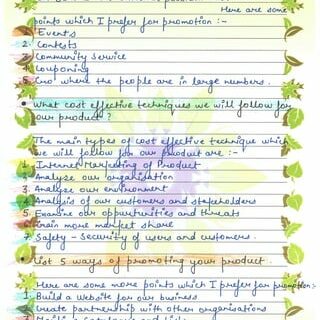 Here are some
points which I prefer for promotion :-
1. Events
2. Contests
3. Community Service
4. Couponing
5. where the people are in large numbers.
• What cost effective techniques we will follow for
our product ?
The main types of cost effective technique which
we will follow for our product are :-
1. Internet Marketing of Product
2. Analyse our organisation
3. Analyse our environment
4. Analysis of our customers and stakeholders
5. Examine our oppurtunities and threats
6. Gain more market share
7. Safety - Security of users and customers.
• List 5 ways of promoting your product.
Here are some more points which I prefer for promotion:-
1. Build a Website for our business.
2. Create partnership with other organisations